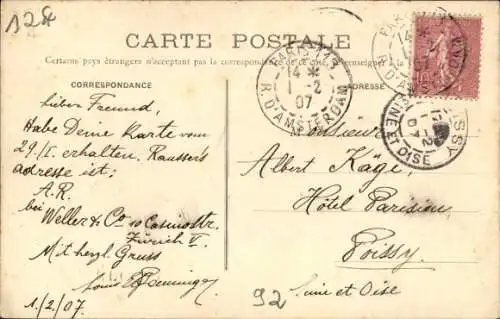 128
CARTE POSTALE
Certains pays étrangers n'acceptant pas la correspondance de ce côté, se renseigner
CORRESPONDANCE
ADRESSE
PARIS
14 *
1-2
07
R. D'AMSTERDAM
POISSY
SEINE ET OISE
Lieber Freund,
Habe Deine Karte vom
29/I. erhalten. Rausser's
adresse ist:
A.R.
bei Weller & Co 10 Casinostr.
Zürich V.
Mit herzl. Gruss
Louis
1/2/07
Monsieur
Albert Kägi
Hôtel Parisien
Poissy
Seine et Oise
92